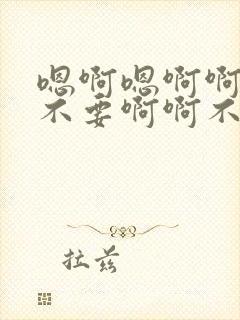 嗯啊嗯啊啊
不要啊啊不
拉兹